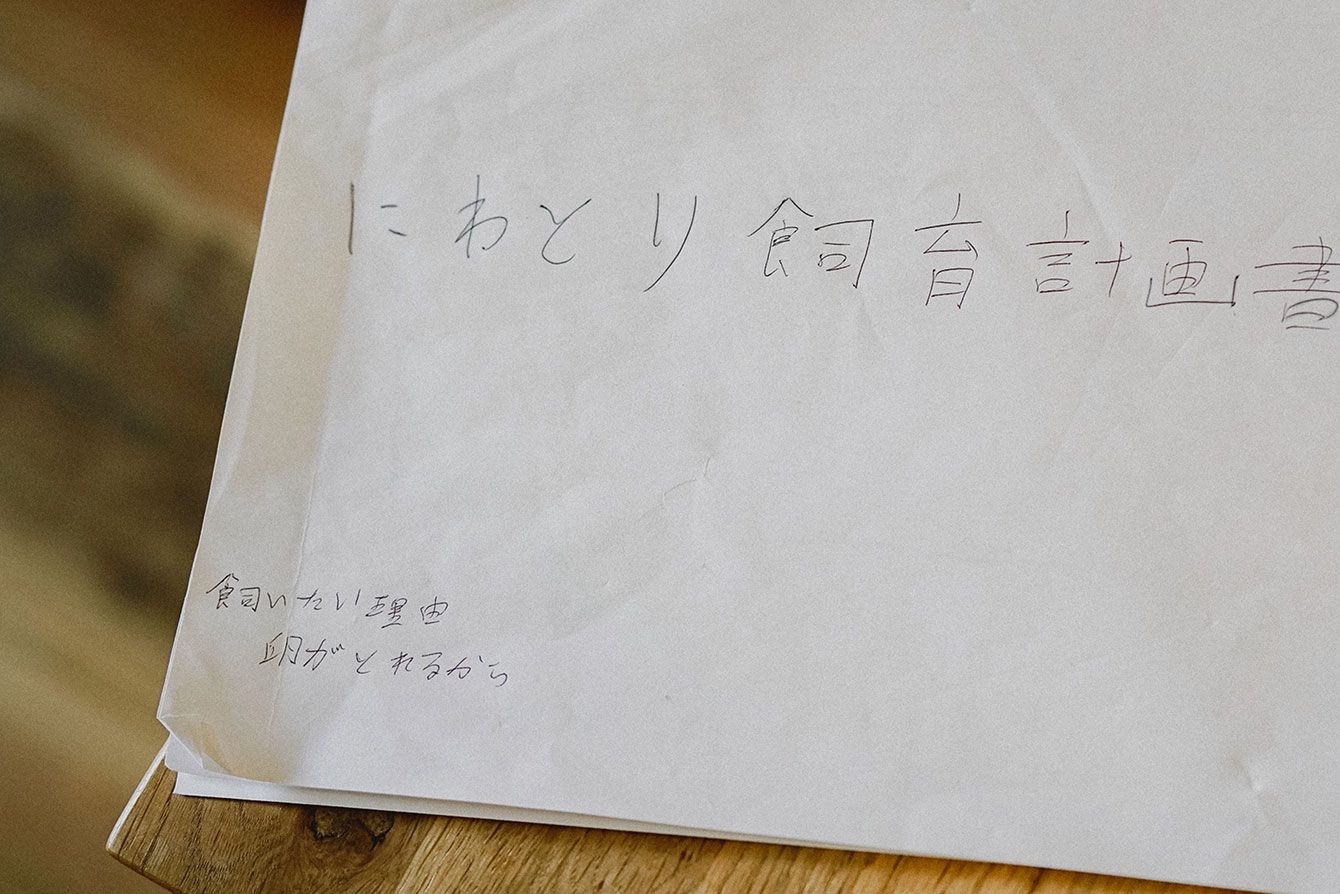 にわとり飼育計画書
飼いたい理由
卵がとれるから